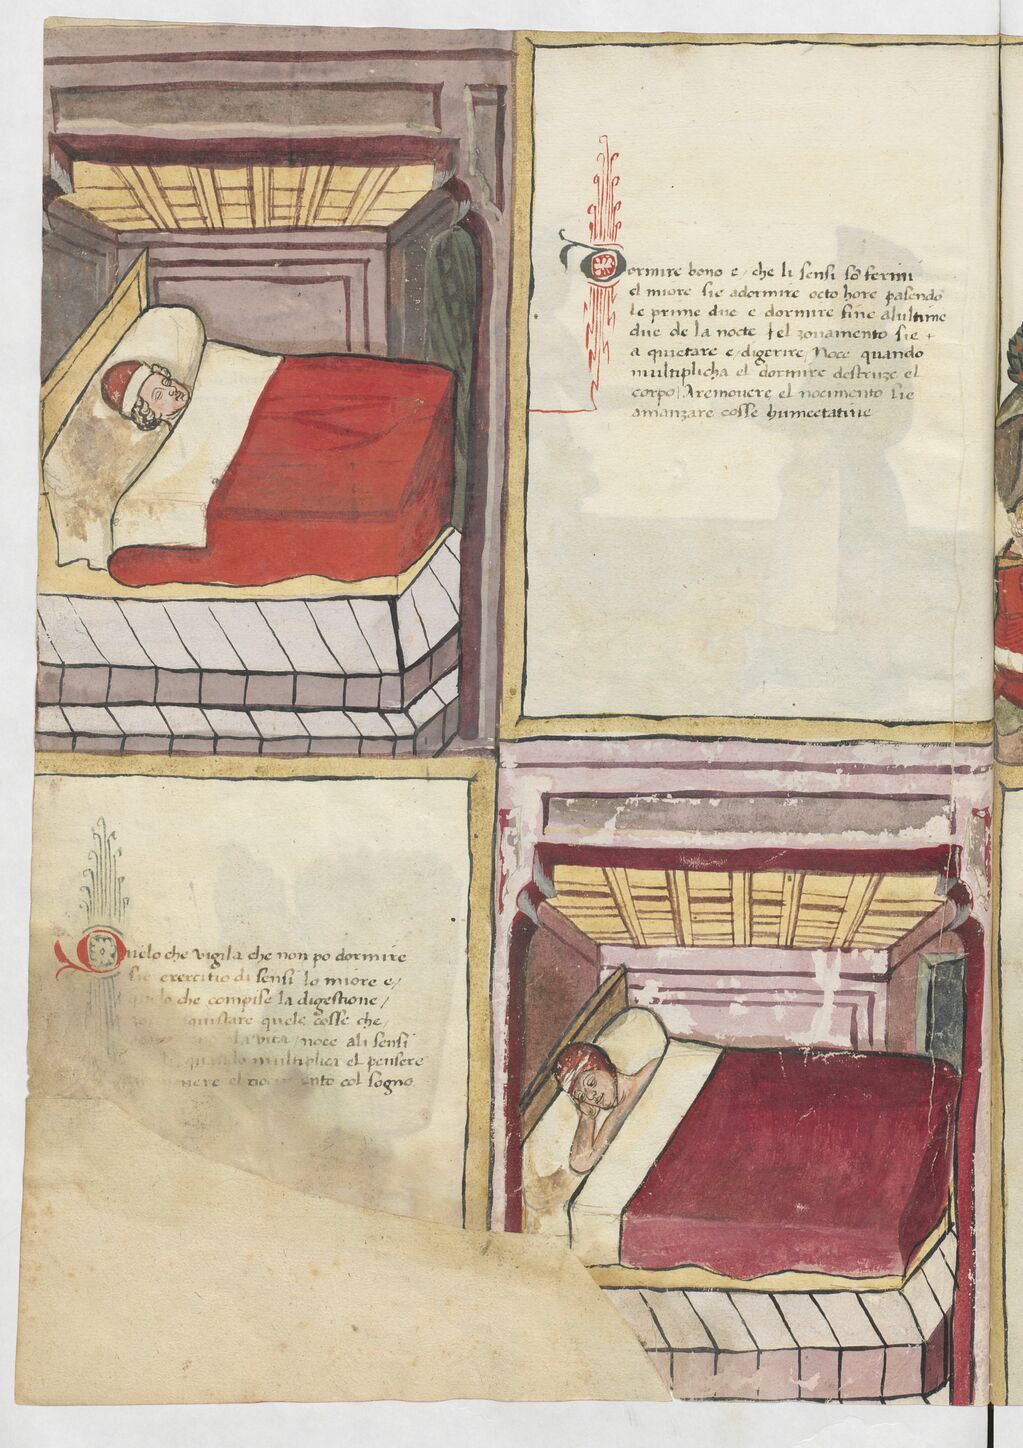 Dormire bono e, che li sensi sō ferini
el miore sie adormire octo hore pasendo
le prime due e dormire fine alultime
due de la nocte / el zovamento sie +
a quietare e, digerire, Noce quando
multiplicha el dormire destruze el
corpo / Aremovere el nocimento sie
amanzare cosse humectative
Quelo che vigila che non po dormire
sie exercitio di sensi lo miore e,
quelo che compise la digestione,
aquistare quele cosse che,
la vita, noce ali sensi
quando multiplica el pensere
el nocimento col sogno